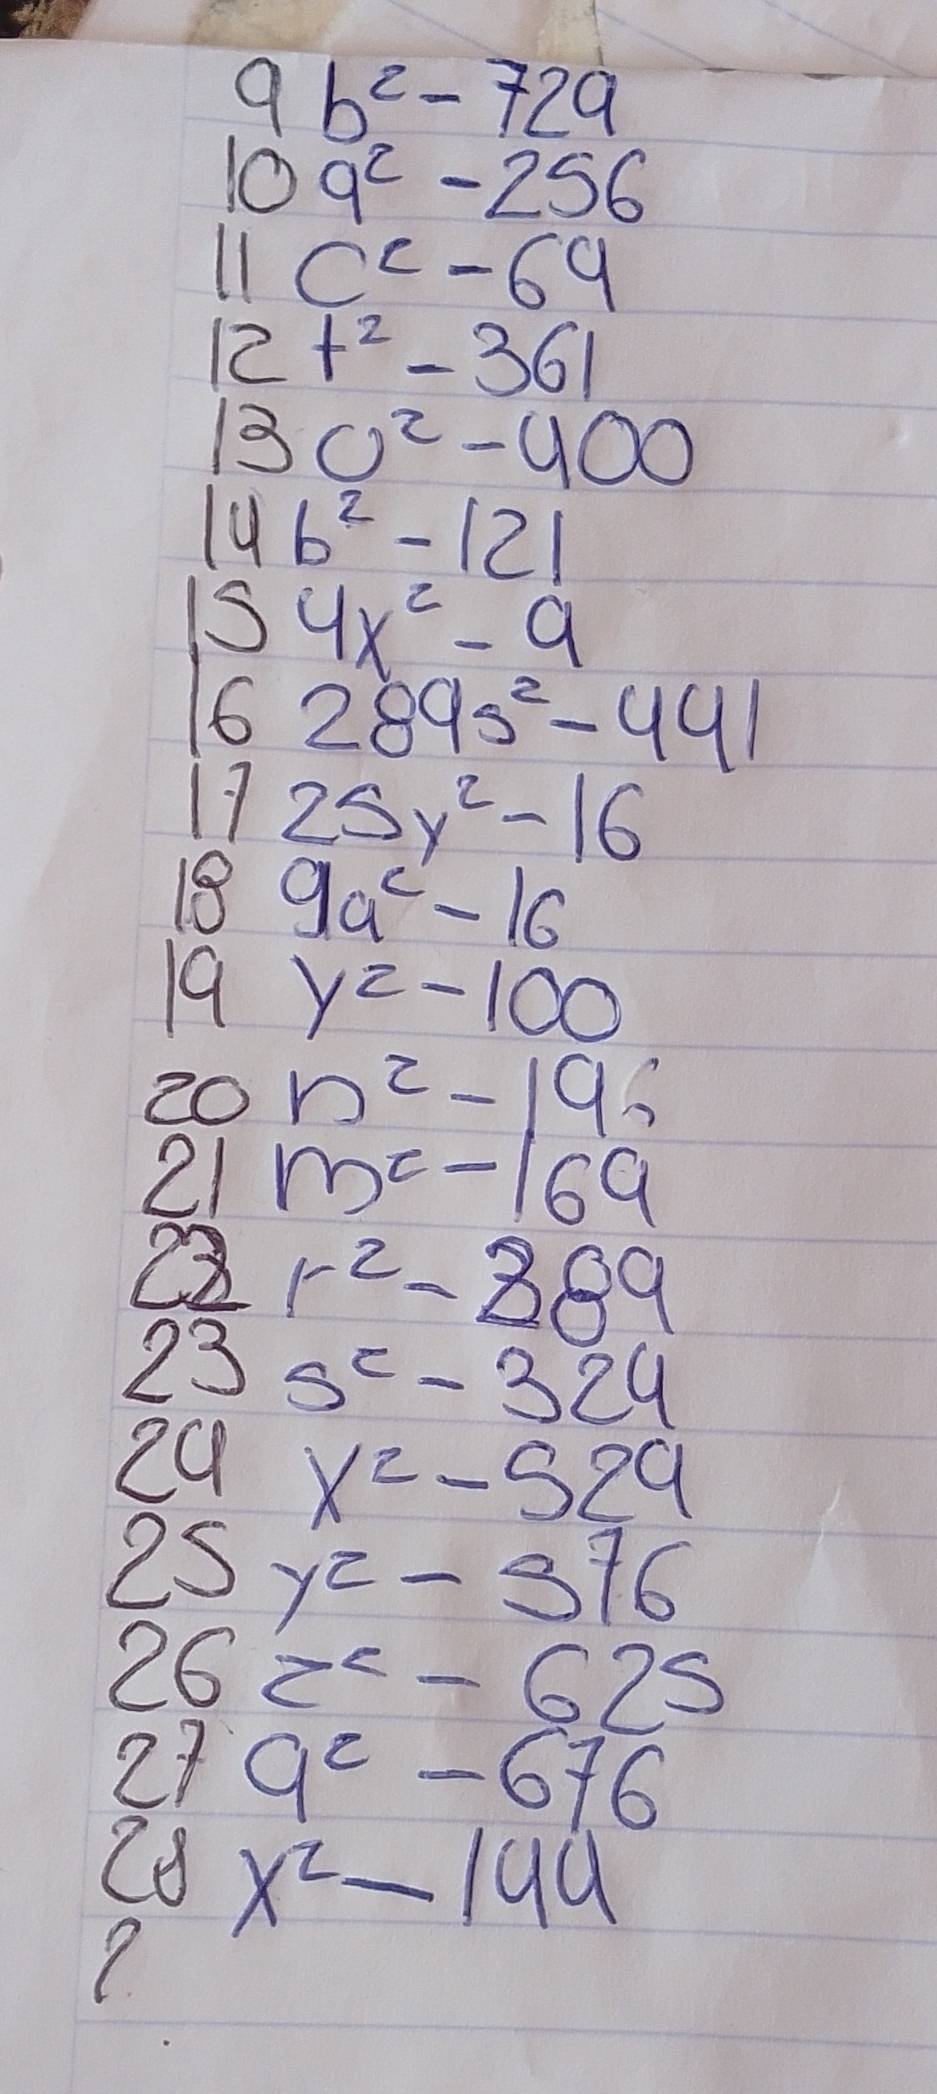 9 b² - 729
10 q² - 256
11 c² - 64
12 t² - 361
13 u² - 400
14 b² - 121
15 4x² - 9
16 289s² - 441
17 25y² - 16
18 9a² - 16
19 y² - 100
20 n² - 196
21 m² - 169
22 r² - 289
23 s² - 324
24 x² - 529
25 y² - 576
26 z² - 625
27 a² - 676
28 x² - 144
2